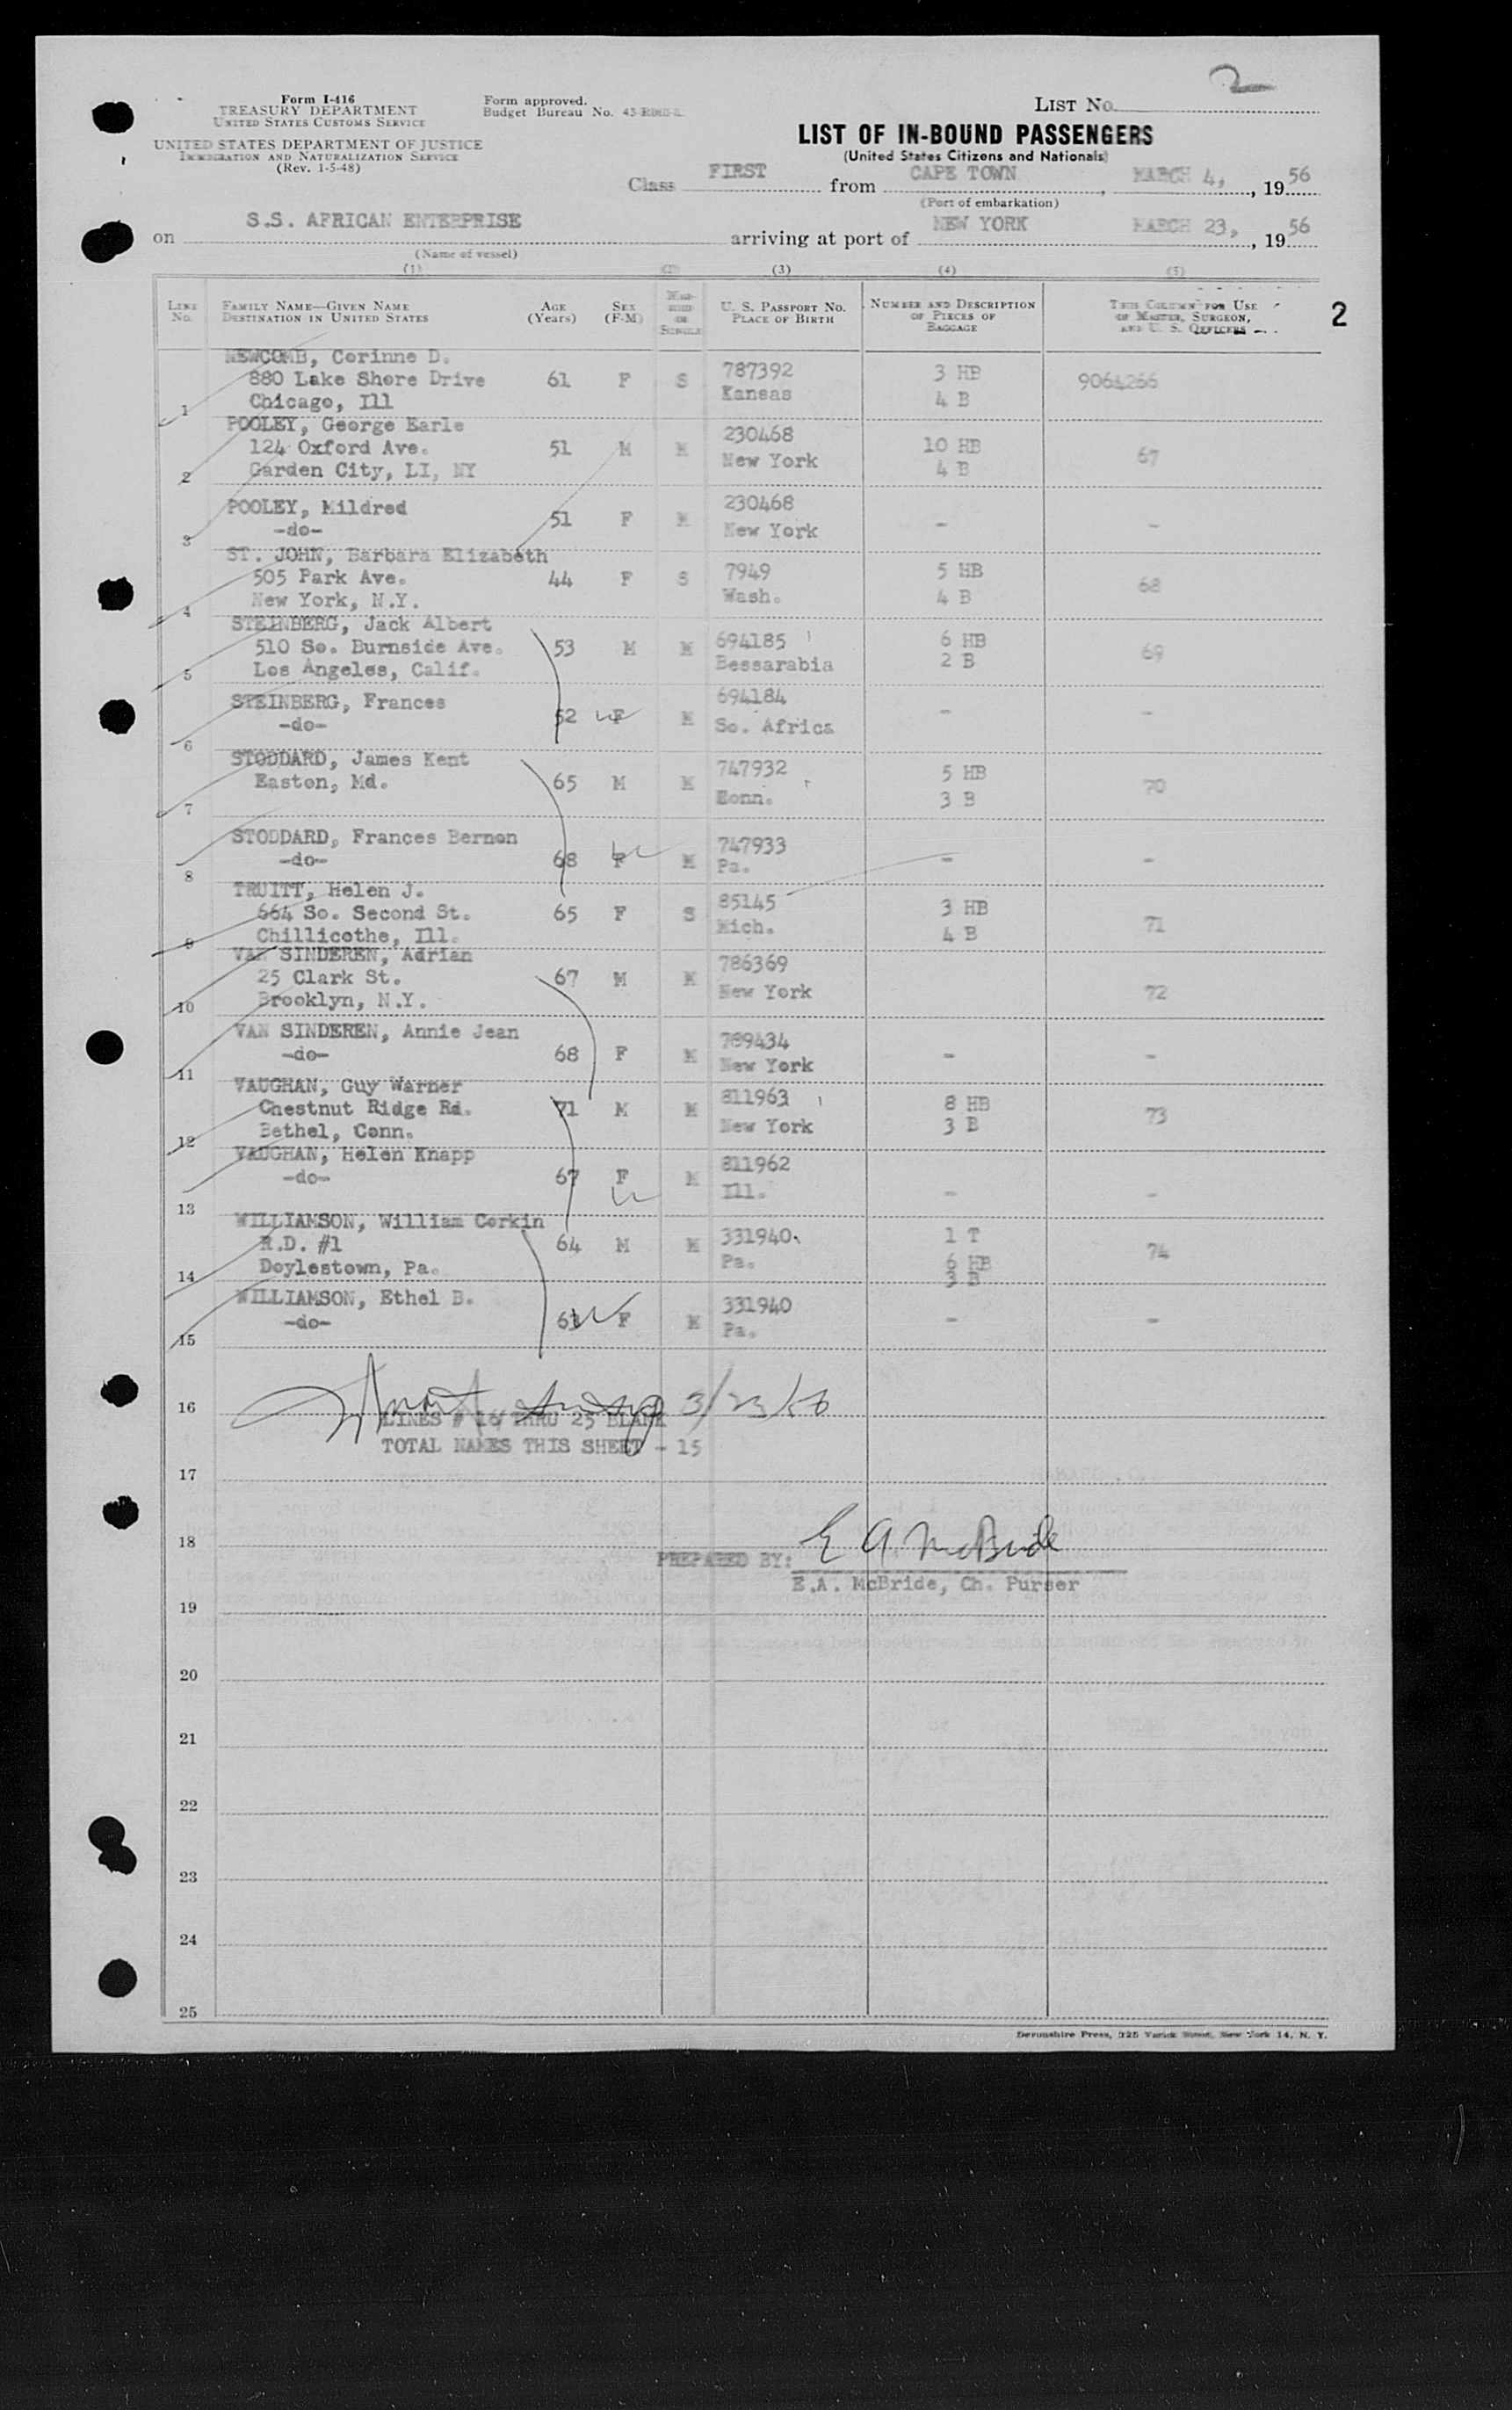 2
Form I-416
TREASURY DEPARTMENT
UNITED STATES CUSTOMS SERVICE
UNITED STATES DEPARTMENT OF JUSTICE
IMMIGRATION AND NATURALIZATION SERVICE
(Rev. 1-5-48)
Form approved.
Budget Bureau No.
LIST No.
LIST OF IN-BOUND PASSENGERS
(United States Citizens and Nationals)
Class FIRST from CAPE TOWN, MARCH 4, , 1956
(Port of embarkation)
on S.S. AFRICAN ENTERPRISE arriving at port of NEW YORK MARCH 23, , 1956
(Name of vessel)
(1) (2) (3) (4) (5)
LINE No. FAMILY NAME—GIVEN NAME DESTINATION IN UNITED STATES AGE (Years) SEX (F-M) MARRIED OR SINGLE U. S. PASSPORT NO. PLACE OF BIRTH NUMBER AND DESCRIPTION OF PIECES OF BAGGAGE THIS COLUMN FOR USE OF MASTER, SURGEON, AND U. S. OFFICERS 2
NEWCOMB, Corinne D.
880 Lake Shore Drive 61 F S 787392 3 HB 9064266
1 Chicago, Ill Kansas 4 B
POOLEY, George Earle
124 Oxford Ave. 51 M M 230468 10 HB 67
2 Garden City, LI, NY New York 4 B
POOLEY, Mildred 230468
3 -do- 51 F M New York - -
ST. JOHN, Barbara Elizabeth
505 Park Ave. 44 F S 7949 5 HB 68
4 New York, N.Y. Wash. 4 B
STEINBERG, Jack Albert
510 So. Burnside Ave. 53 M M 694185 6 HB 69
5 Los Angeles, Calif. Bessarabia 2 B
STEINBERG, Frances 694184
6 -do- 52 F M So. Africa - -
STODDARD, James Kent 747932 5 HB
7 Easton, Md. 65 M M Bonn. 3 B 70
STODDARD, Frances Bernon 747933
8 -do- 68 F M Pa. - -
TRUITT, Helen J.
664 So. Second St. 65 F S 85145 3 HB 71
9 Chillicothe, Ill. Mich. 4 B
VAN SINDEREN, Adrian
25 Clark St. 67 M M 786369
10 Brooklyn, N.Y. New York 72
VAN SINDEREN, Annie Jean 789434
11 -do- 68 F M New York - -
VAUGHAN, Guy Warner
Chestnut Ridge Rd. 71 M M 811963 8 HB 73
12 Bethel, Conn. New York 3 B
VAUGHAN, Helen Knapp 811962
13 -do- 67 F M Ill. - -
WILLIAMSON, William Corkin 1 T
R.D. #1 64 M M 331940 6 HB 74
14 Doylestown, Pa. Pa. 3 B
WILLIAMSON, Ethel B. 331940
15 -do- 61 F M Pa. - -
3/23/56
16 LINES # 16 THRU 25 BLANK
TOTAL NAMES THIS SHEET - 15
17
18
E A McBride
PREPARED BY:
E.A. McBride, Ch. Purser
19
20
21
22
23
24
25
Devonshire Press, 225 Varick Street, New York 14, N. Y.